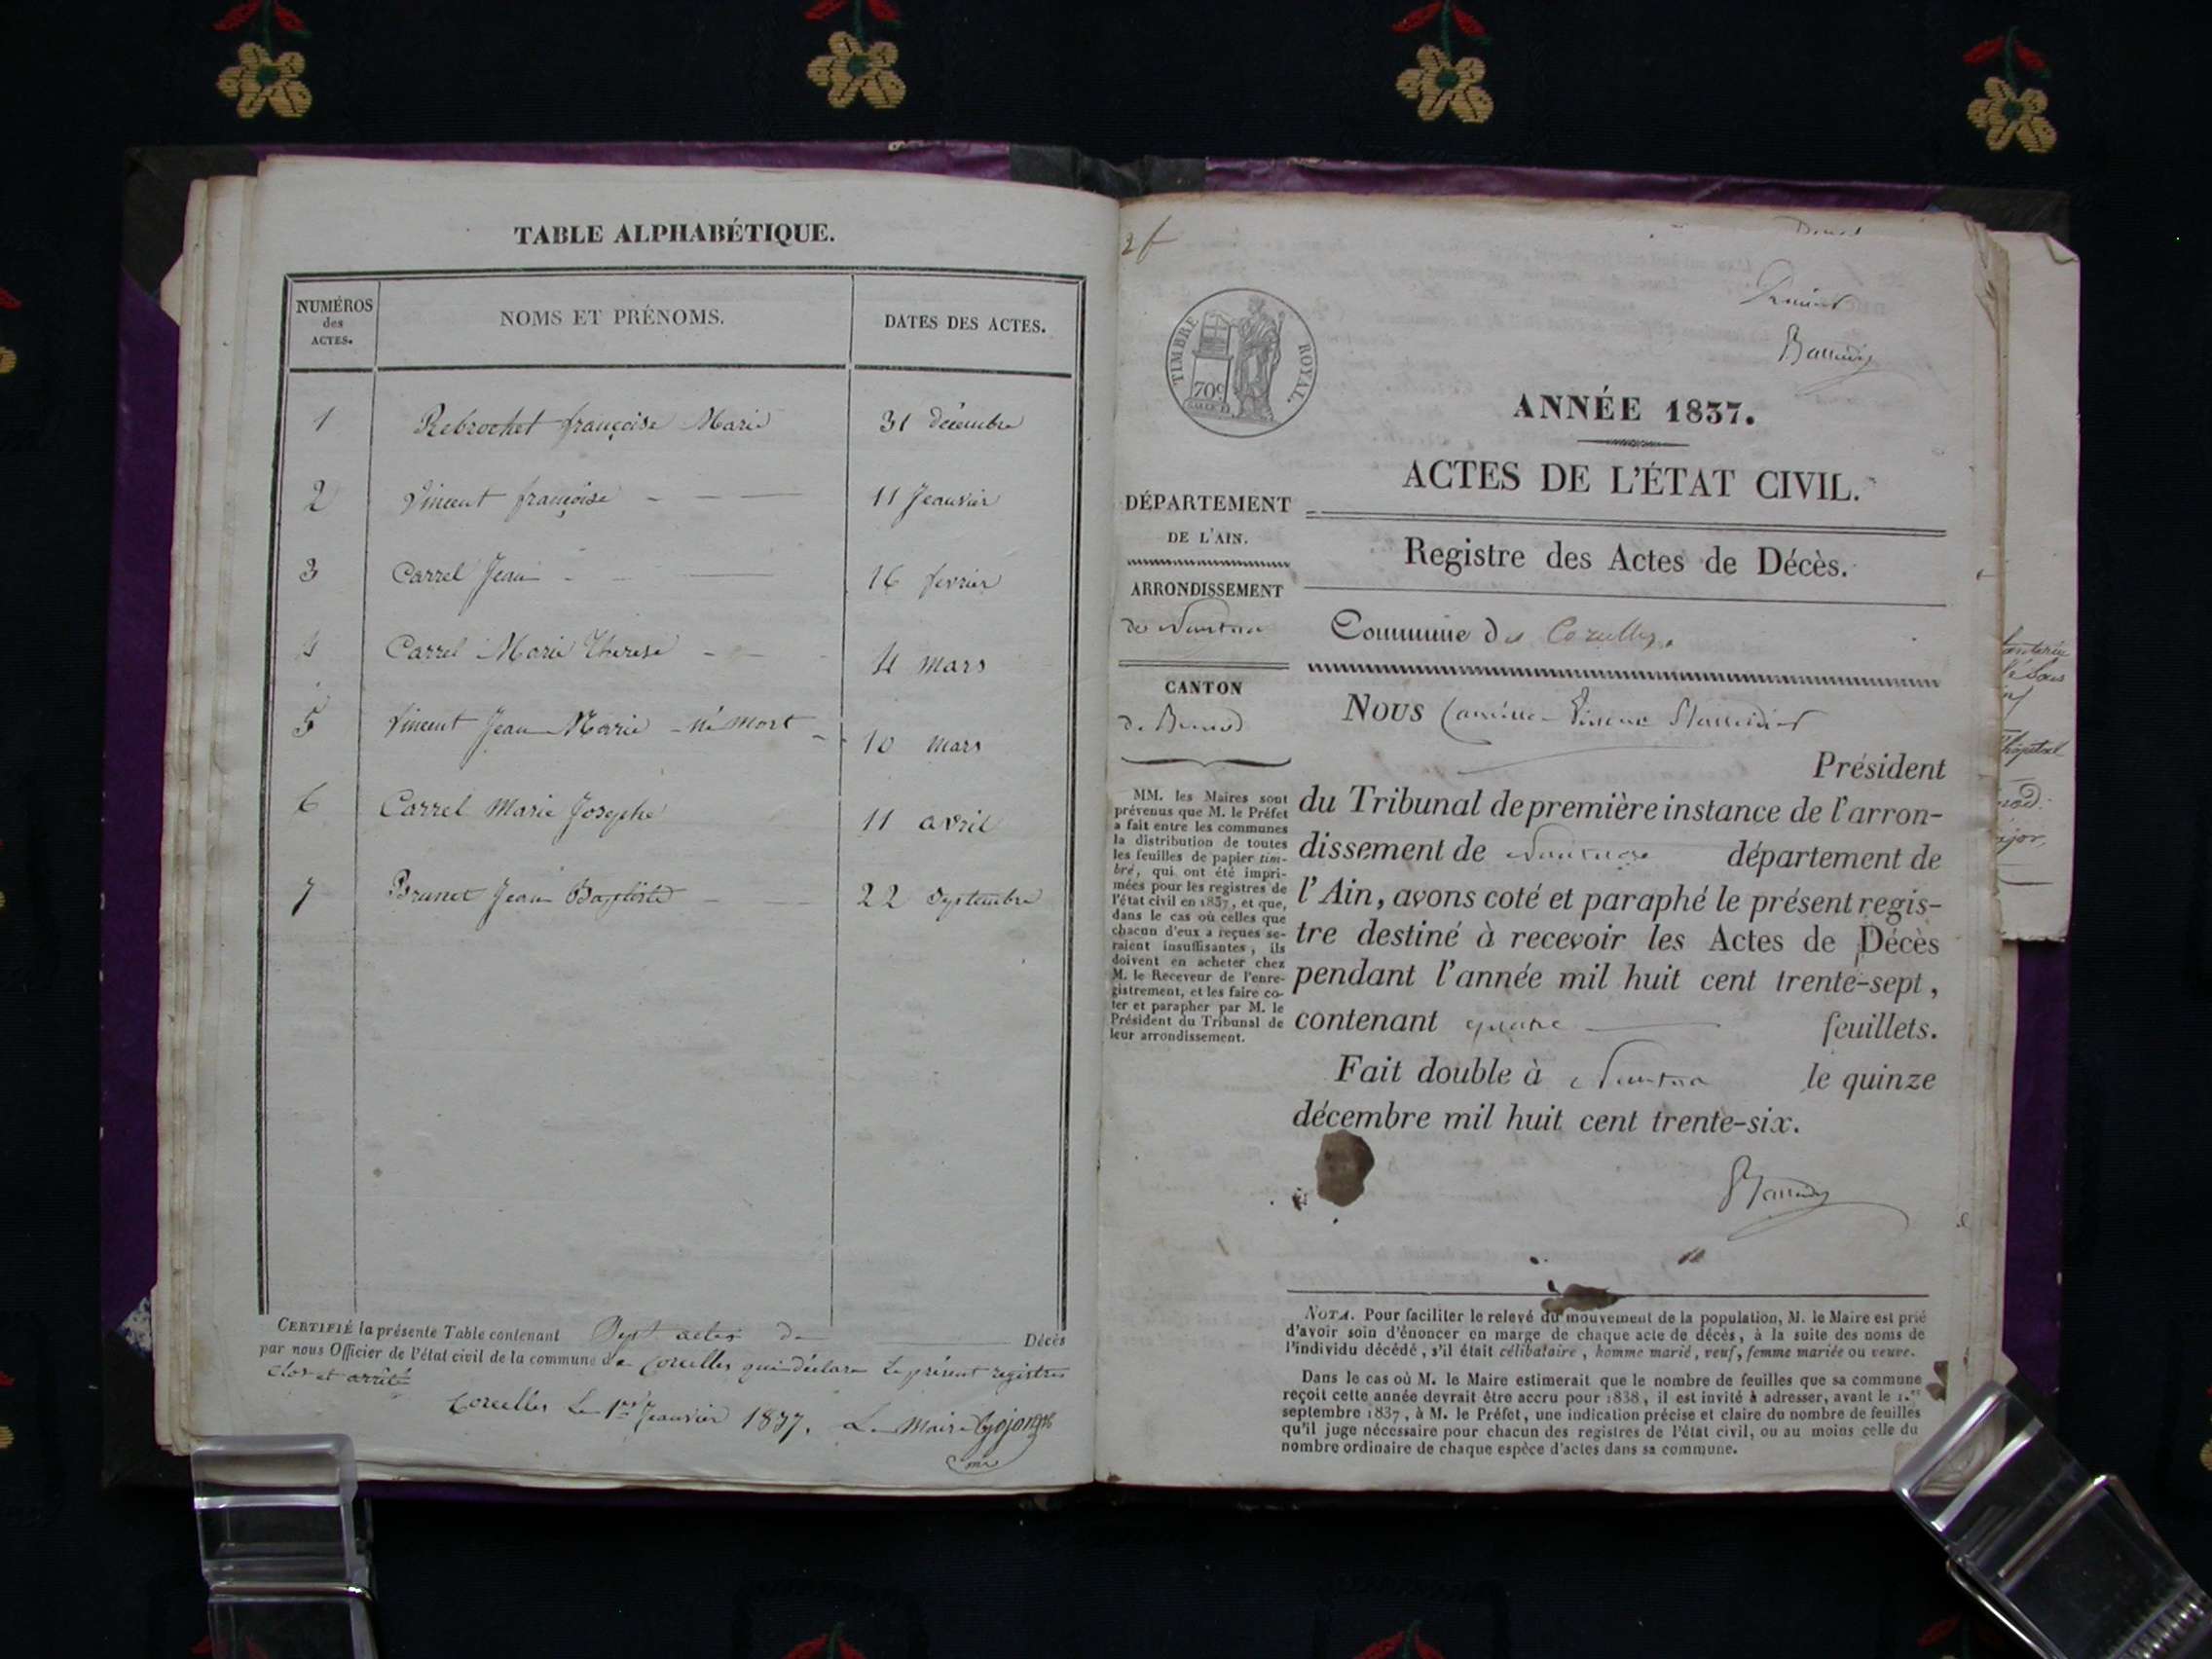 TABLE ALPHABÉTIQUE.
NUMÉROS
des
ACTES.
NOMS ET PRÉNOMS.
DATES DES ACTES.
1 Rebrochet françoise Marie 31 décembre
2 Vincent françoise 11 Jeanvier
3 Carrel Jean 16 fevrier
4 Carrel Marie Therese 4 mars
5 Vincent Jean Marie - né mort 10 mars
6 Carrel Marie Josephe 11 avril
7 Brunet Jean Baptiste 22 septembre
CERTIFIÉ la présente Table contenant Sept actes de Décès
par nous Officier de l'état civil de la commune de Corcelles qui déclare le présent registre
clos et arrêté
Corcelles Le 1er Jeanvier 1837. Le Maire
TIMBRE ROYAL.
70c
ANNÉE 1837.
ACTES DE L'ÉTAT CIVIL.
DÉPARTEMENT
DE L'AIN.
ARRONDISSEMENT
de Nantua
CANTON
de Brenod
MM. les Maires sont
prévenus que M. le Préfet
a fait entre les communes
la distribution de toutes
les feuilles de papier tim-
bré, qui ont été impri-
mées pour les registres de
l'état civil en 1837, et que,
dans le cas où celles que
chacun d'eux a reçues se-
raient insuffisantes, ils
doivent en acheter chez
M. le Receveur de l'enre-
gistrement, et les faire co-
ter et parapher par M. le
Président du Tribunal de
leur arrondissement.
Registre des Actes de Décès.
Commune de Corcelles.
Nous
Président
du Tribunal de première instance de l'arron-
dissement de Nantua département de
l'Ain, avons coté et paraphé le présent regis-
tre destiné à recevoir les Actes de Décès
pendant l'année mil huit cent trente-sept,
contenant quatre feuillets.
Fait double à Nantua le quinze
décembre mil huit cent trente-six.
NOTA. Pour faciliter le relevé du mouvement de la population, M. le Maire est prié
d'avoir soin d'énoncer en marge de chaque acte de décès, à la suite des noms de
l'individu décédé, s'il était célibataire, homme marié, veuf, femme mariée ou veuve.
Dans le cas où M. le Maire estimerait que le nombre de feuilles que sa commune
reçoit cette année devrait être accru pour 1838, il est invité à adresser, avant le 1.er
septembre 1837, à M. le Préfet, une indication précise et claire du nombre de feuilles
qu'il juge nécessaire pour chacun des registres de l'état civil, ou au moins celle du
nombre ordinaire de chaque espèce d'actes dans sa commune.